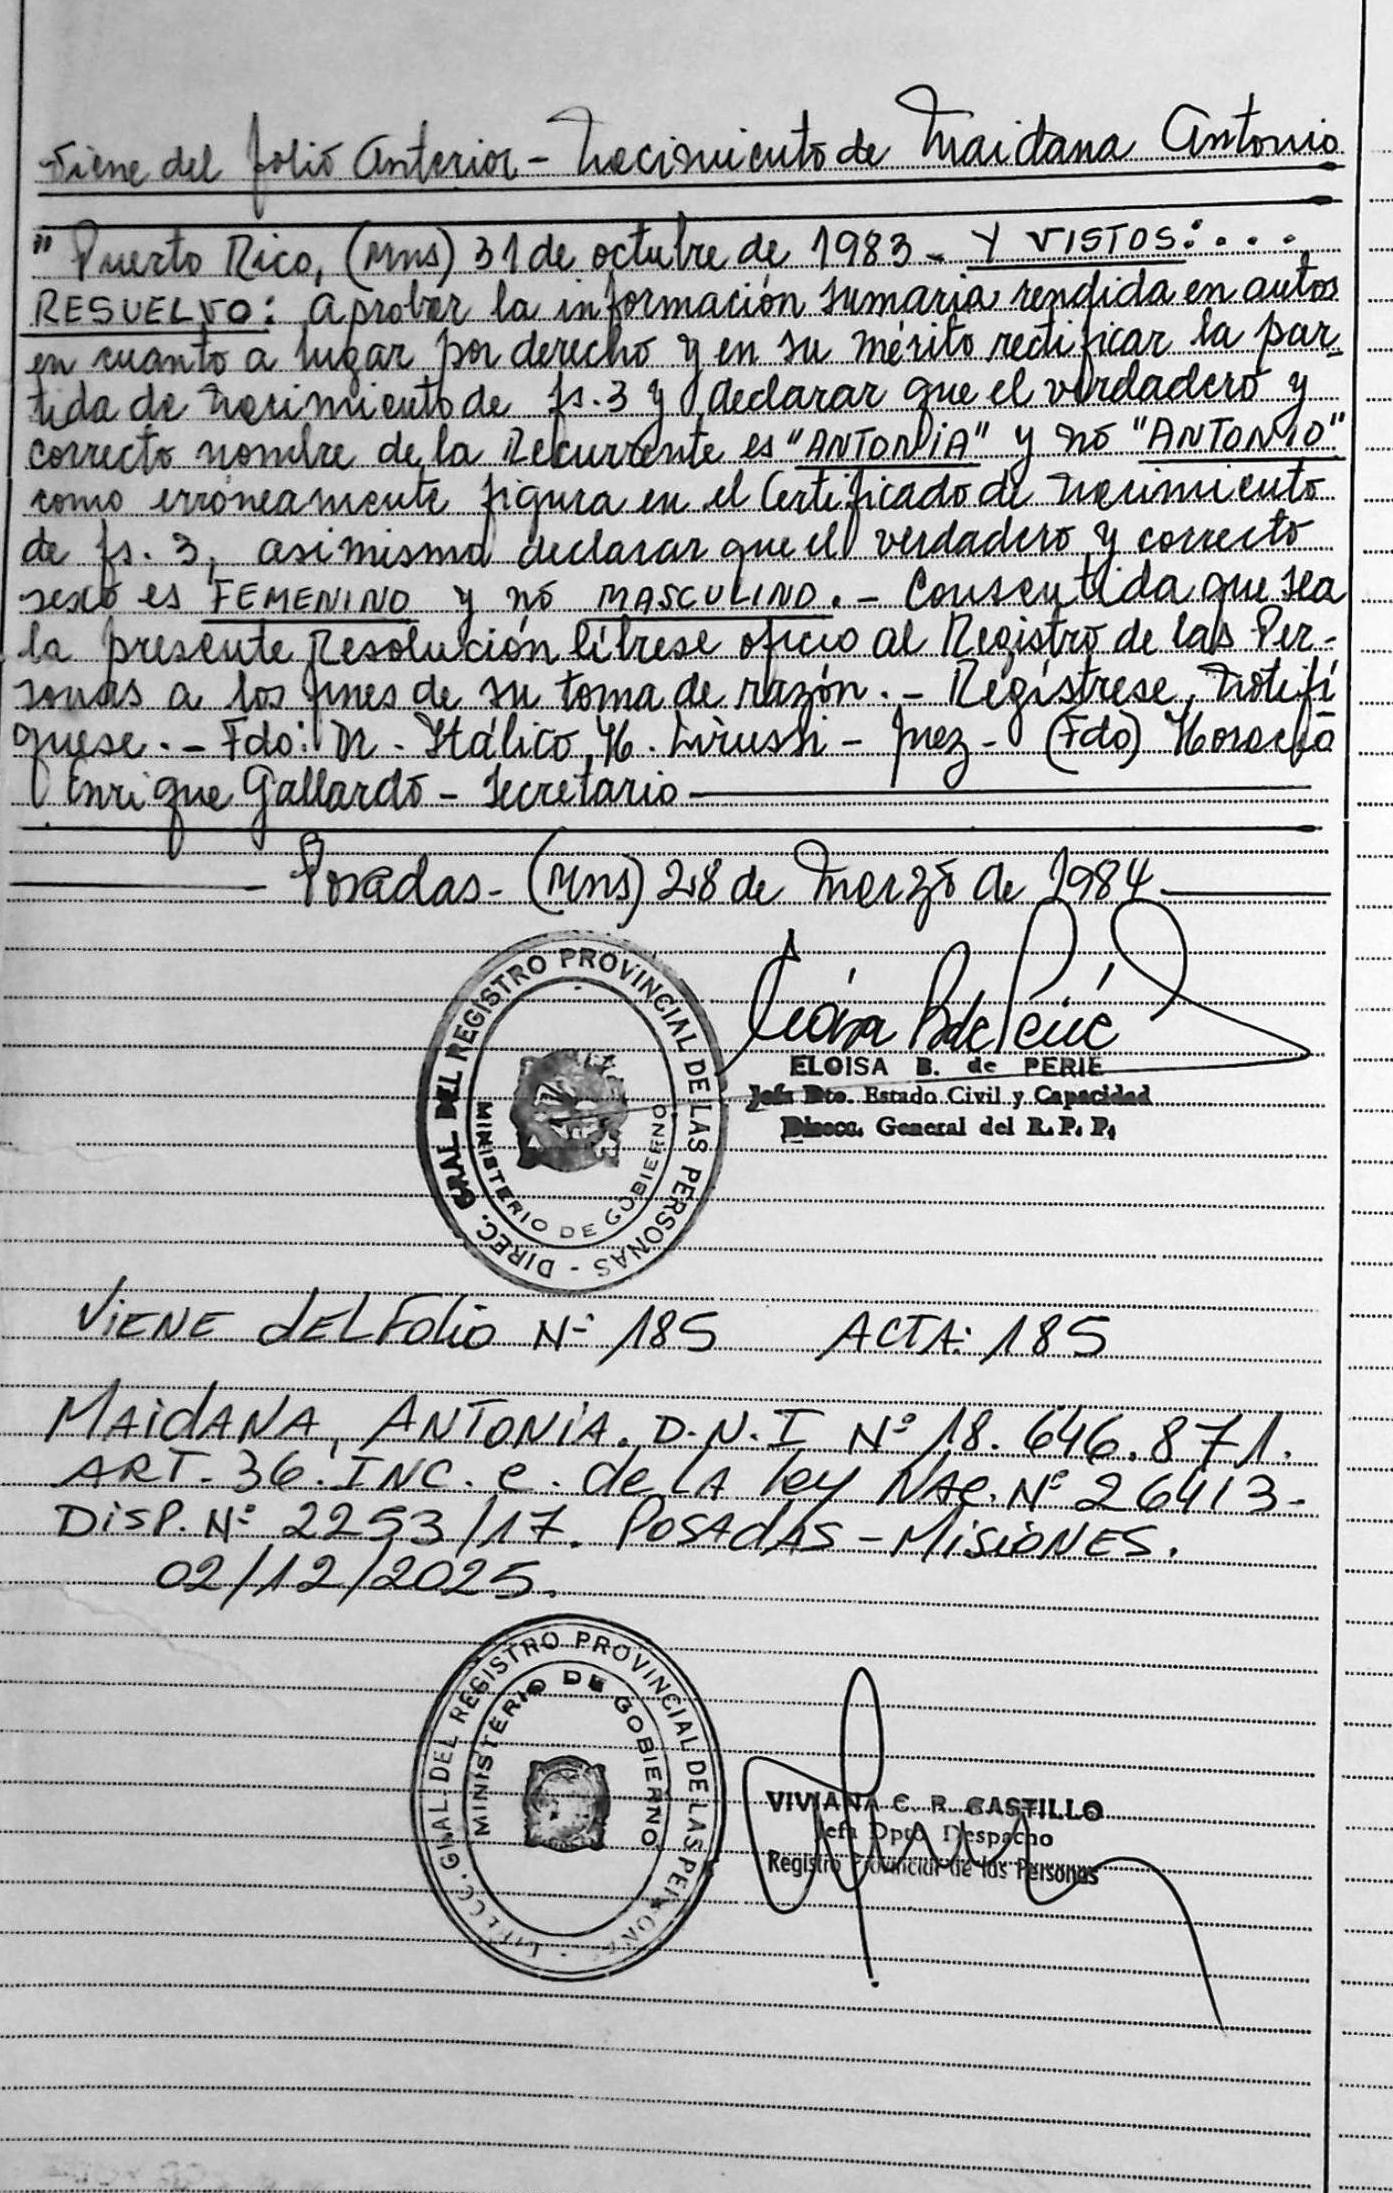 Viene del folio Anterior - Nacimiento de Maidana Antonio
"Puerto Rico, (Mns) 31 de octubre de 1983 - Y VISTOS: . . . .
RESUELVO: Aprobar la información sumaria rendida en autos
en cuanto a lugar por derecho y en su mérito rectificar la par-
tida de nacimiento de fs. 3 y declarar que el verdadero y
correcto nombre de la Recurrente es "ANTONIA" y no "ANTONIO"
como erróneamente figura en el Certificado de nacimiento
de fs. 3, asimismo declarar que el verdadero y correcto
sexo es FEMENINO y no MASCULINO. - Consentida que sea
la presente Resolución líbrese oficio al Registro de las Per-
sonas a los fines de su toma de razón. - Regístrese, Notifí
quese. - Fdo: Dr. Itálico H. - Juez - (Fdo) Horacio
Enrique Gallardo - Secretario
Posadas - (Mns) 28 de Marzo de 1984
DIREC. GRAL DEL REGISTRO PROVINCIAL DE LAS PERSONAS -
MINISTERIO DE GOBIERNO
ELOISA B. de PERIE
Jefa Dto. Estado Civil y Capacidad
Direcc. General del R. P. P.
VIENE DEL FOLIO Nº 185 ACTA: 185
MAIDANA, ANTONIA. D.N.I Nº 18.646.871.
ART. 36. INC. c. de LA Ley NAC. Nº 26413-
DISP. Nº 2253/17. POSADAS - MISIONES.
02/12/2025.
DIRECC. GRAL DEL REGISTRO PROVINCIAL DE LAS PERSONAS -
MINISTERIO DE GOBIERNO
VIVIANA C. R. CASTILLO
Jefa Dpto Despacho
Registro Provincial de las Personas